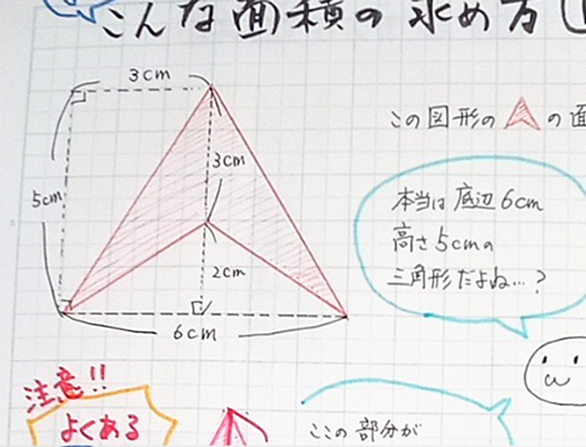 こんな面積の求め方
3cm
この図形の
の面
3cm
5cm
2cm
6cm
本当は底辺6cm
高さ5cmの
三角形だよね…?
注意!!
よくある
ここの部分が